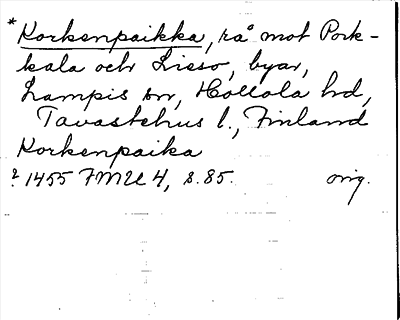 *Korkenpaikka, rå mot Pork-
kala och Lisso, byar,
Lampis sn, Hollola hd,
Tavastehus l., Finland
Korkenpaika
? 1455 FMU 4, s. 85. orig.